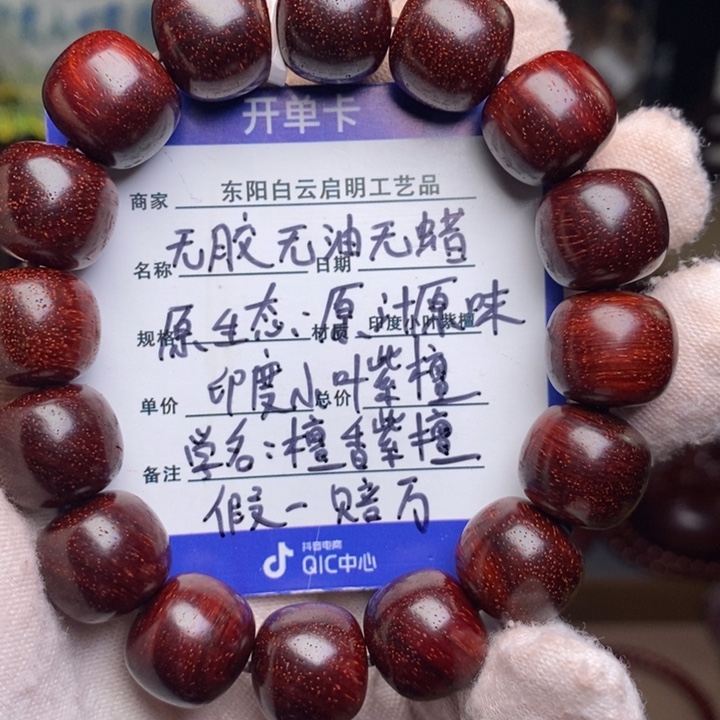 开单卡
商家 东阳白云启明工艺品
无胶无油无蜡
名称 日期
原生态:原汁原味
规格 材质 印度小叶紫檀
印度小叶紫檀
单价 总价
学名:檀香紫檀
备注
假一赔万
抖音电商
QIC中心